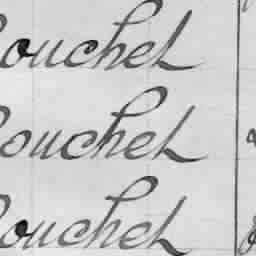 ouchel
ouchel
ouchel